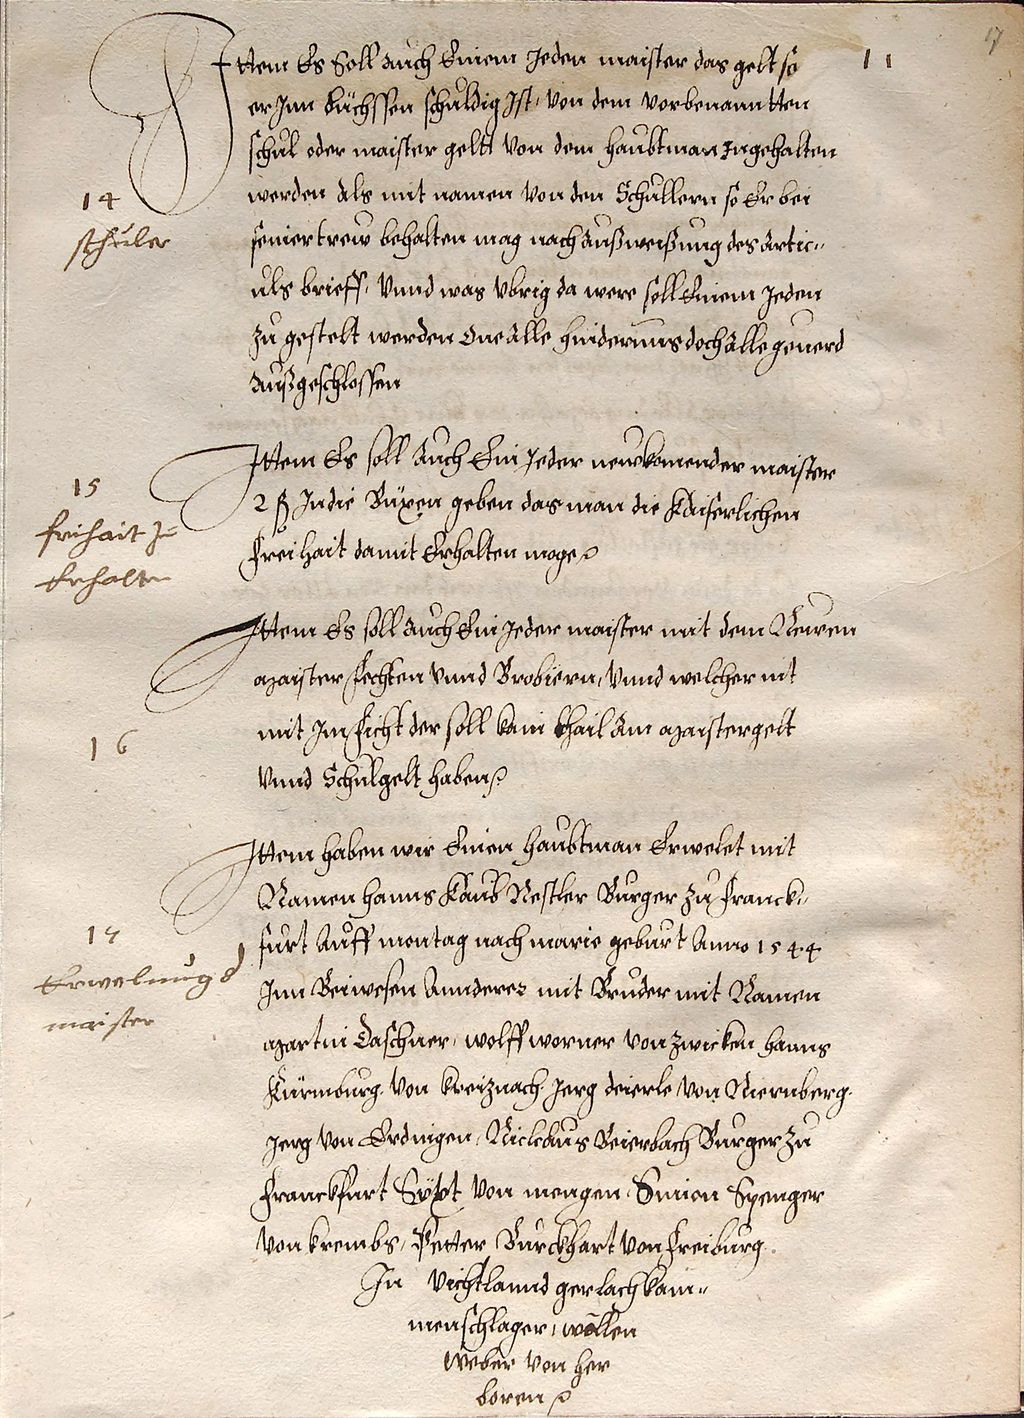 11
Ittem Es Soll Auch Einem Jeden maister das gelt so
er Inn büchssen schuldig Ist, von dem vorbenanntten
schul oder maister geltt von dem haubtman Ingehalten
werden Als mit namen von den Schullern so Er bei
seiner trew behalten mag nach Außweißung des Artic=
uls brieff, Vnnd was vbrig da were soll Einem Jeden
zu gestelt werden One Alle hindernus doch Alle geuerd
Außgeschlossen
14
schuler
Ittem Es soll Auch Ein Jeder neuwkomender maister
2 ß In die Büxen geben das man die Kaiserlichen
Freihait damit Erhalten moge
15
freihait zu
Erhalten
Ittem Es soll Auch Ein Jeder maister mit dem Newen
maister Fechten vnnd Brobiern, Vnnd welcher nit
mit Im ficht der soll kain thail Am maistergelt
Vnnd Schulgelt haben
16
Ittem haben wir Einen haubtman Erwelet mit
Namen hanns Kaub Nestler Burger zu Franck=
furt Auff montag nach marie geburt Anno 1544
Inn Beiwesen Annderer mit Bruder mit Namen
martin Daschner, wolff worner von zwicken hanns
Kürmburg von Kreiznach Jerg deierle von Niernberg
Jerg von Erdnigen, Nicklaus Beierbach Burger zu
Franckfurt Sÿxt von mengen Simon Spenger
von Krembs, Petter Burckhart von Freiburg
In Vichtlannd gerlach kam=
menschlager, wollen
weber von her
boren
17
Erwelnung d
maister